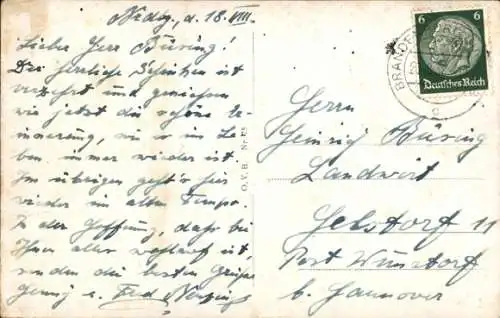 Ndbg., d. 18. VIII.
Lieber Herr Büring!
Der herrliche Schinken ist
verzehrt und geniessen
wir jetzt die schöne Er-
innerung, wie es im Le-
ben immer wieder ist.
Im übrigen geht's hier
wieder im alten Tempo.
In der Hoffnung, dass bei
Ihnen alles wohlauf ist,
senden die besten Grüsse
u. Fred
O.V.B. Nr.
BRANDEN
6 6
Deutsches Reich
Herrn
Heinrich Büring
Landwirt
Helstorf 11
Post Wunstorf
b. Hannover